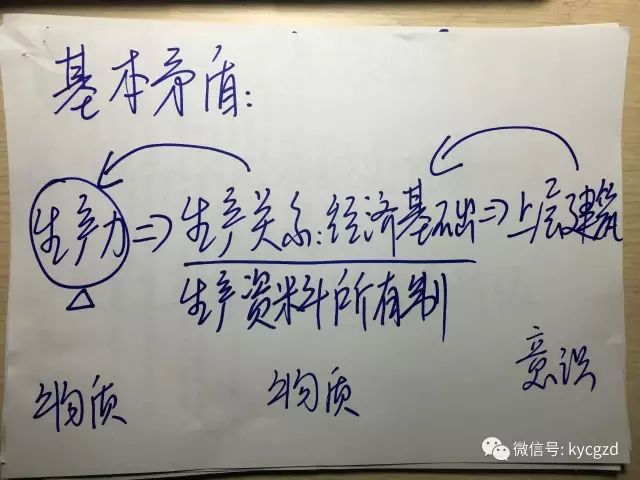 基本矛盾:
生产力⇒生产关系:经济基础⇒上层建筑
生产资料所有制
物质 物质 意识
微信号: kycgzd